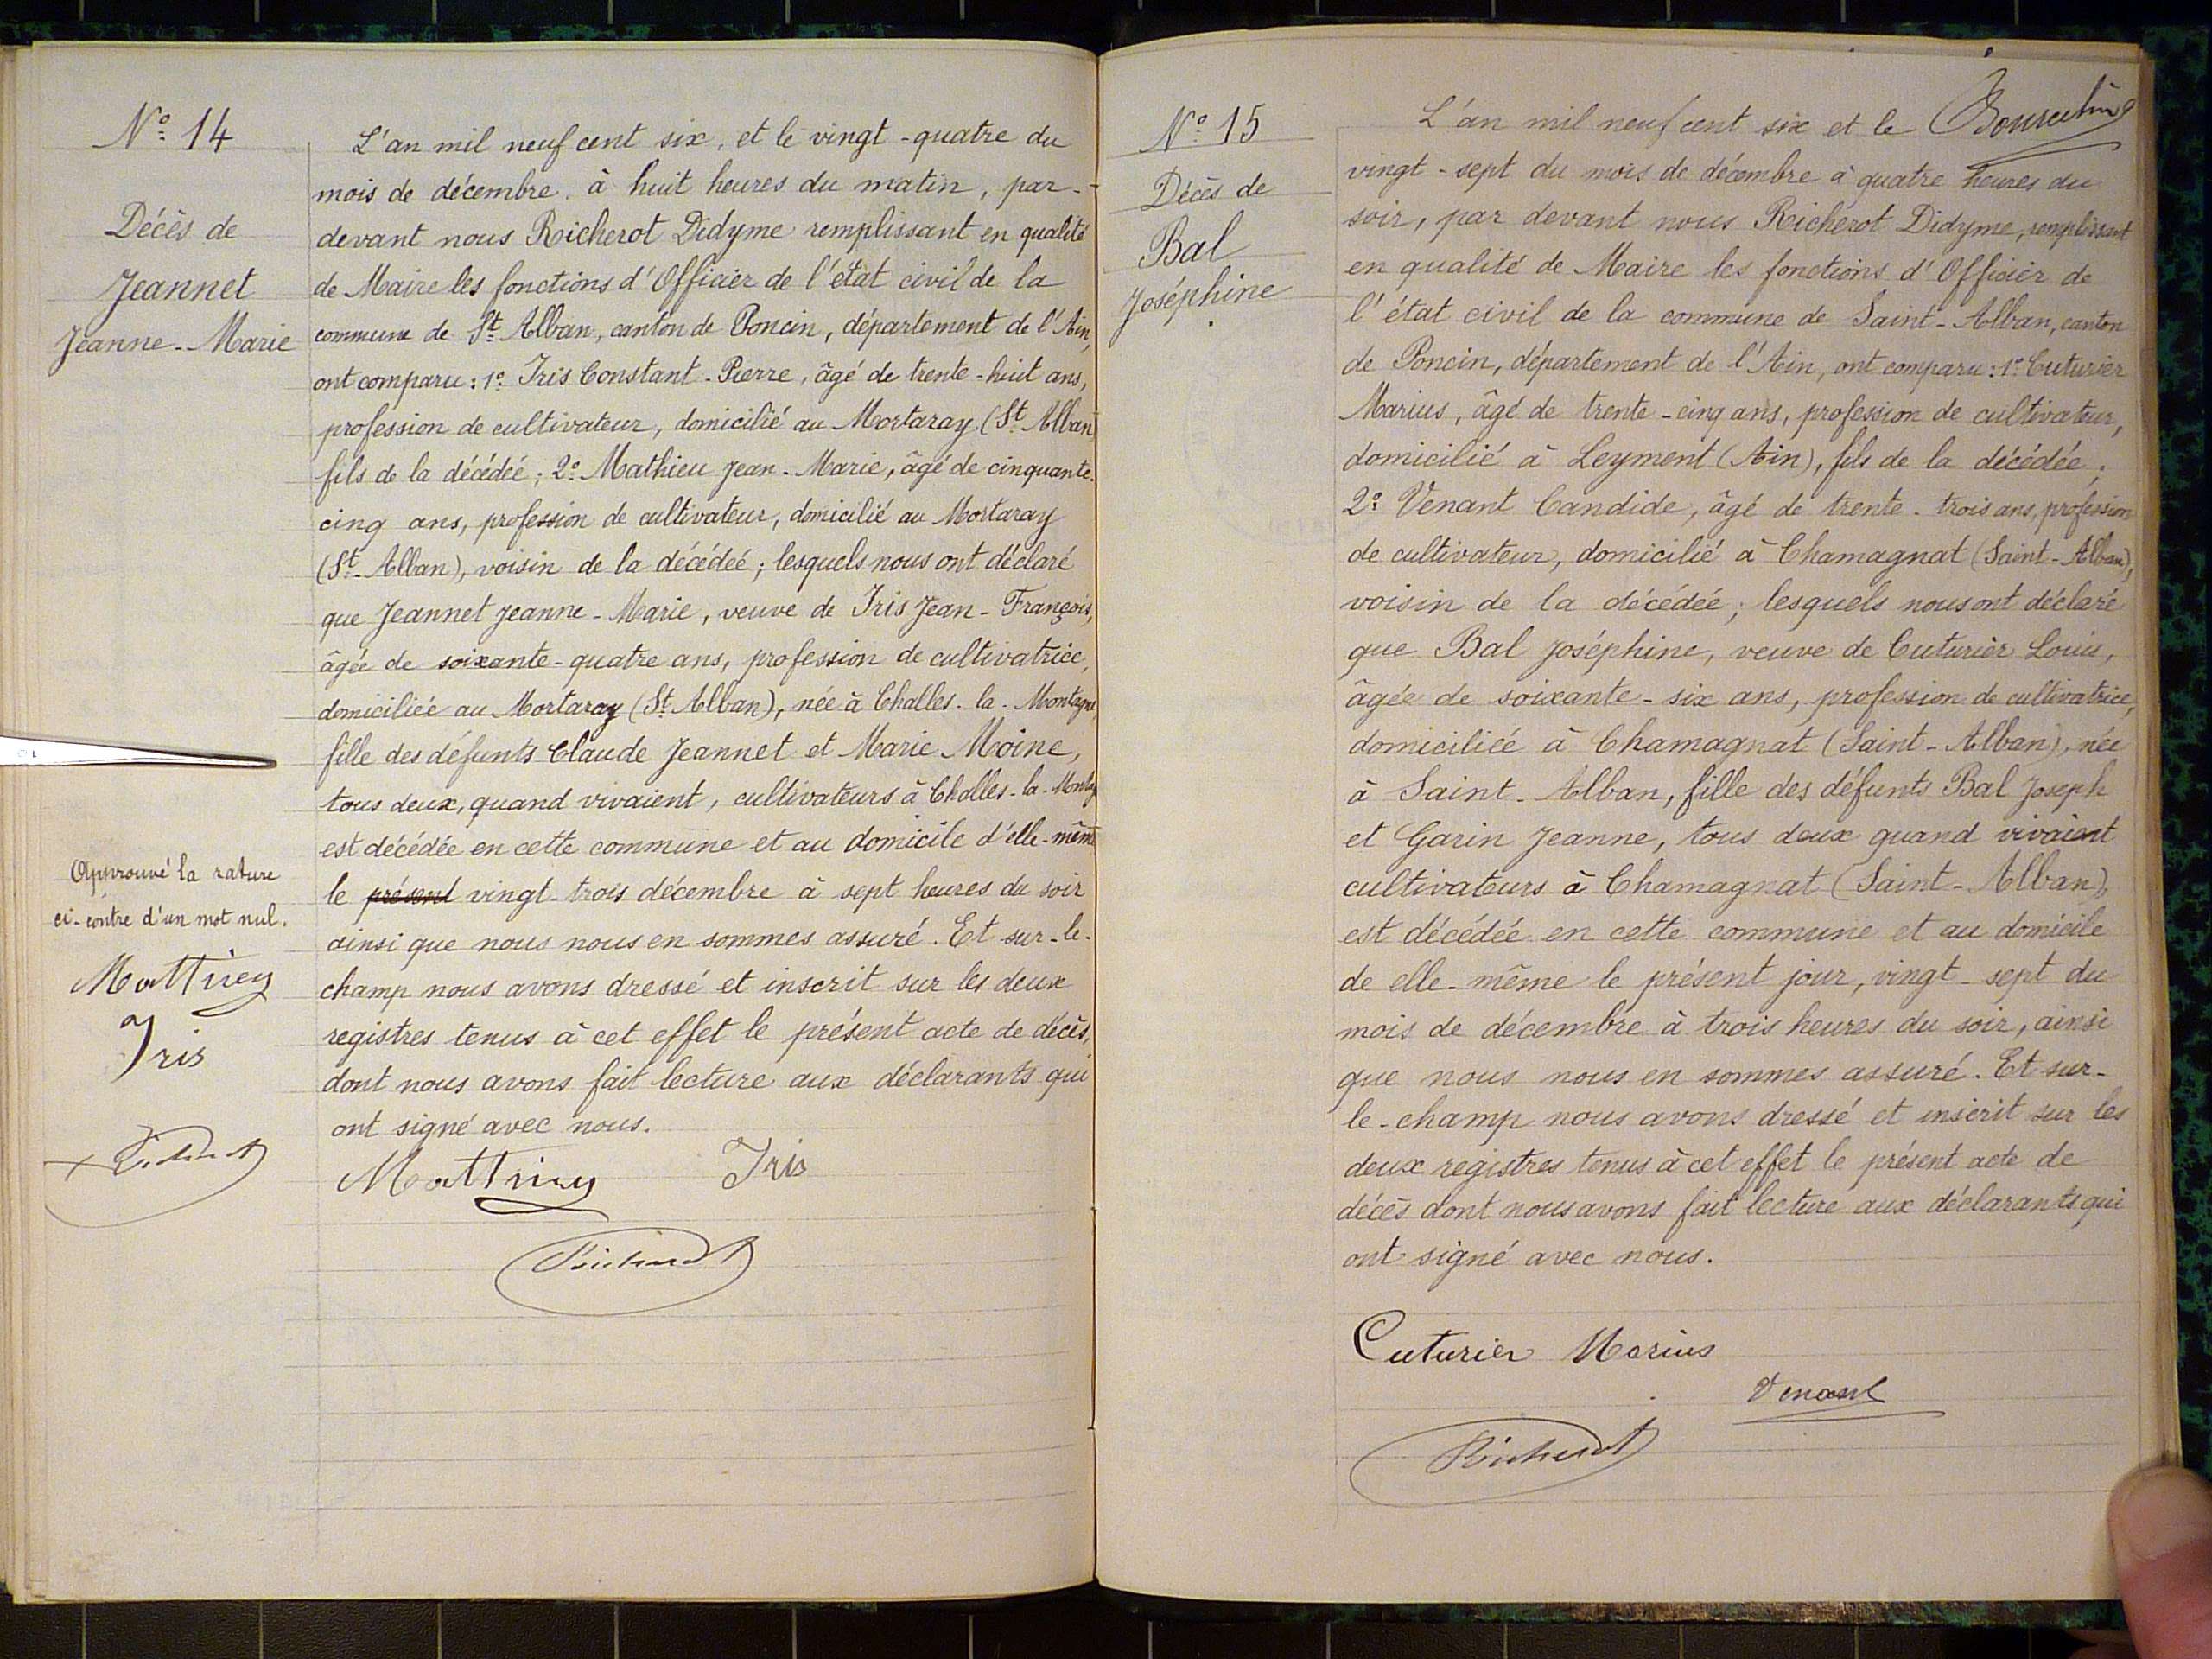 N° 14
Décès de
Jeannet
Jeanne-Marie
L'an mil neuf cent six, et le vingt-quatre du
mois de décembre, à huit heures du matin, par-
devant nous Richerot Didyme remplissant en qualité
de Maire les fonctions d'Officier de l'état civil de la
commune de St Alban, canton de Poncin, département de l'Ain,
ont comparu: 1° Iris Constant-Pierre, âgé de trente-huit ans,
profession de cultivateur, domicilié au Mortaray (St Alban)
fils de la décédée; 2° Mathieu Jean-Marie, âgé de cinquante-
cinq ans, profession de cultivateur, domicilié au Mortaray
(St-Alban), voisin de la décédée; lesquels nous ont déclaré
que Jeannet Jeanne-Marie, veuve de Iris Jean-François,
âgée de soixante-quatre ans, profession de cultivatrice,
domiciliée au Mortaray (St Alban), née à Challes-la-Montagne,
fille des défunts Claude Jeannet et Marie Moine,
tous deux, quand vivaient, cultivateurs à Challes-la-Montag
est décédée en cette commune et au domicile d'elle-même
le présent vingt-trois décembre à sept heures du soir
ainsi que nous nous en sommes assuré. Et sur-le-
champ nous avons dressé et inscrit sur les deux
registres tenus à cet effet le présent acte de décès,
dont nous avons fait lecture aux déclarants qui
ont signé avec nous.
Approuvé la rature
ci-contre d'un mot nul.
Mathieu
Iris
Richerot
Mathieu Iris
Richerot
N° 15
Décès de
Bal
Joséphine
L'an mil neuf cent six et le
vingt-sept du mois de décembre à quatre heures du
soir, par devant nous Richerot Didyme, remplissant
en qualité de Maire les fonctions d'Officier de
l'état civil de la commune de Saint-Alban, canton
de Poncin, département de l'Ain, ont comparu: 1° Cuturier
Marius, âgé de trente-cinq ans, profession de cultivateur,
domicilié à Leyment (Ain), fils de la décédée;
2° Venant Candide, âgé de trente-trois ans, profession
de cultivateur, domicilié à Chamagnat (Saint-Alban),
voisin de la décédée; lesquels nous ont déclaré
que Bal Joséphine, veuve de Cuturier Louis,
âgée de soixante-six ans, profession de cultivatrice,
domiciliée à Chamagnat (Saint-Alban), née
à Saint-Alban, fille des défunts Bal Joseph
et Garin Jeanne, tous deux quand vivaient
cultivateurs à Chamagnat (Saint-Alban),
est décédée en cette commune et au domicile
de elle-même le présent jour, vingt-sept du
mois de décembre à trois heures du soir, ainsi
que nous nous en sommes assuré. Et sur-
le-champ nous avons dressé et inscrit sur les
deux registres tenus à cet effet le présent acte de
décès dont nous avons fait lecture aux déclarants qui
ont signé avec nous.
Cuturier Marius
Venant
Richerot